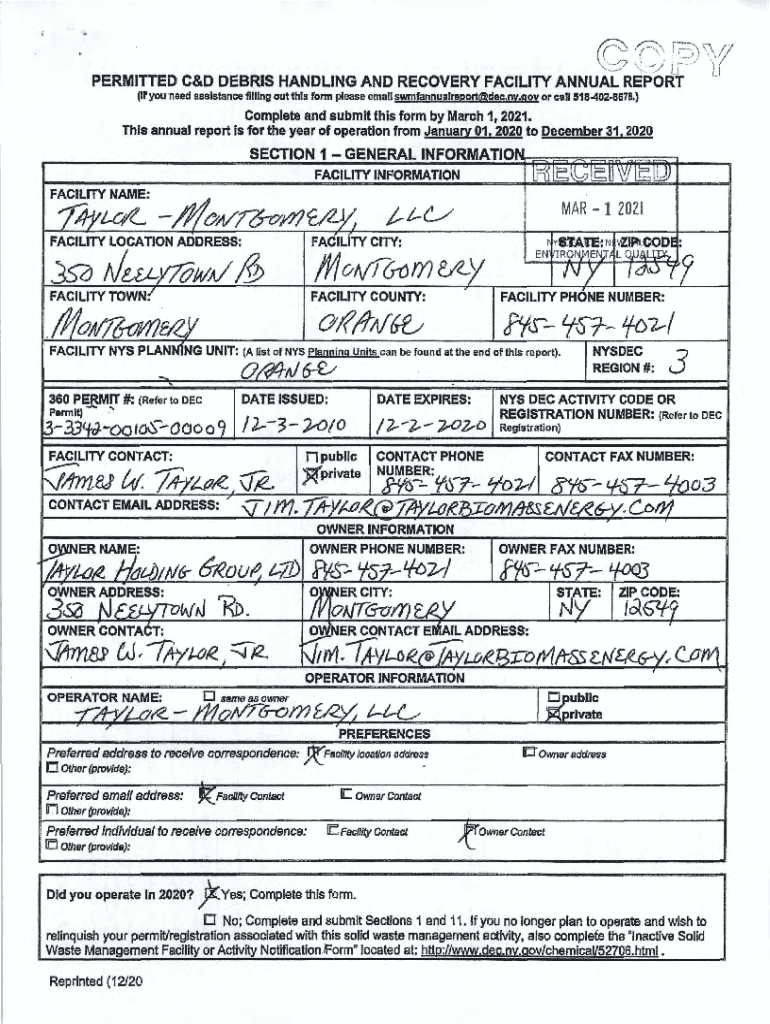 COPY
PERMITTED C&D DEBRIS HANDLING AND RECOVERY FACILITY ANNUAL REPORT
(If you need assistance filling out this form please email swmfannualreport@dec.ny.gov or call 518-402-8678.)
Complete and submit this form by March 1, 2021.
This annual report is for the year of operation from January 01, 2020 to December 31, 2020
SECTION 1 – GENERAL INFORMATION
RECEIVED
FACILITY INFORMATION
MAR - 1 2021
FACILITY NAME:
TAYLOR - MONTGOMERY, LLC
FACILITY LOCATION ADDRESS: FACILITY CITY: STATE: ZIP CODE:
ENVIRONMENTAL QUALITY
350 NEELYTOWN RD MONTGOMERY NY 12549
FACILITY TOWN: FACILITY COUNTY: FACILITY PHONE NUMBER:
MONTGOMERY ORANGE 845-457-4021
FACILITY NYS PLANNING UNIT: (A list of NYS Planning Units can be found at the end of this report). NYSDEC
ORANGE REGION #: 3
360 PERMIT #: (Refer to DEC DATE ISSUED: DATE EXPIRES: NYS DEC ACTIVITY CODE OR
Permit) REGISTRATION NUMBER: (Refer to DEC
3-3342-00105-00009 12-3-2010 12-2-2020 Registration)
FACILITY CONTACT: public CONTACT PHONE CONTACT FAX NUMBER:
private NUMBER:
JAMES W. TAYLOR, JR. 845-457-4021 845-457-4003
CONTACT EMAIL ADDRESS: JIM.TAYLOR@TAYLORBIOMASSENERGY.COM
OWNER INFORMATION
OWNER NAME: OWNER PHONE NUMBER: OWNER FAX NUMBER:
TAYLOR HOLDING GROUP, LTD 845-457-4021 845-457-4003
OWNER ADDRESS: OWNER CITY: STATE: ZIP CODE:
350 NEELYTOWN RD. MONTGOMERY NY 12549
OWNER CONTACT: OWNER CONTACT EMAIL ADDRESS:
JAMES W. TAYLOR, JR. JIM.TAYLOR@TAYLORBIOMASSENERGY.COM
OPERATOR INFORMATION
OPERATOR NAME: same as owner public
TAYLOR - MONTGOMERY, LLC private
PREFERENCES
Preferred address to receive correspondence: Facility location address Owner address
Other (provide):
Preferred email address: Facility Contact Owner Contact
Other (provide):
Preferred individual to receive correspondence: Facility Contact Owner Contact
Other (provide):
Did you operate in 2020? Yes; Complete this form.
No; Complete and submit Sections 1 and 11. If you no longer plan to operate and wish to
relinquish your permit/registration associated with this solid waste management activity, also complete the "Inactive Solid
Waste Management Facility or Activity Notification Form" located at: http://www.dec.ny.gov/chemical/52706.html .
Reprinted (12/20